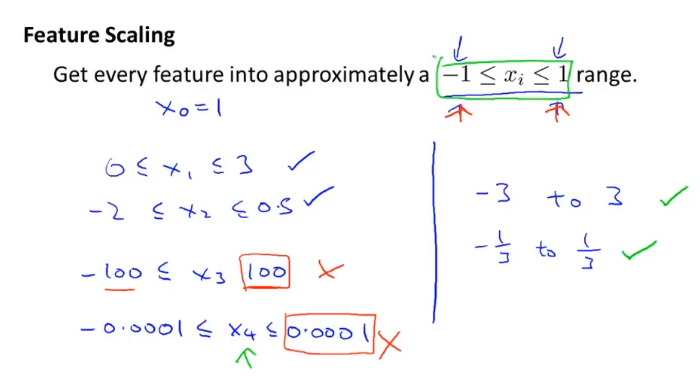 Feature Scaling
Get every feature into approximately a −1 ≤ xᵢ ≤ 1 range.
x₀ = 1
0 ≤ x₁ ≤ 3 ✓
−2 ≤ x₂ ≤ 0.5 ✓
−100 ≤ x₃ 100 ✗
−0.0001 ≤ x₄ ≤ 0.0001 ✗
−3 to 3 ✓
−1/3 to 1/3 ✓